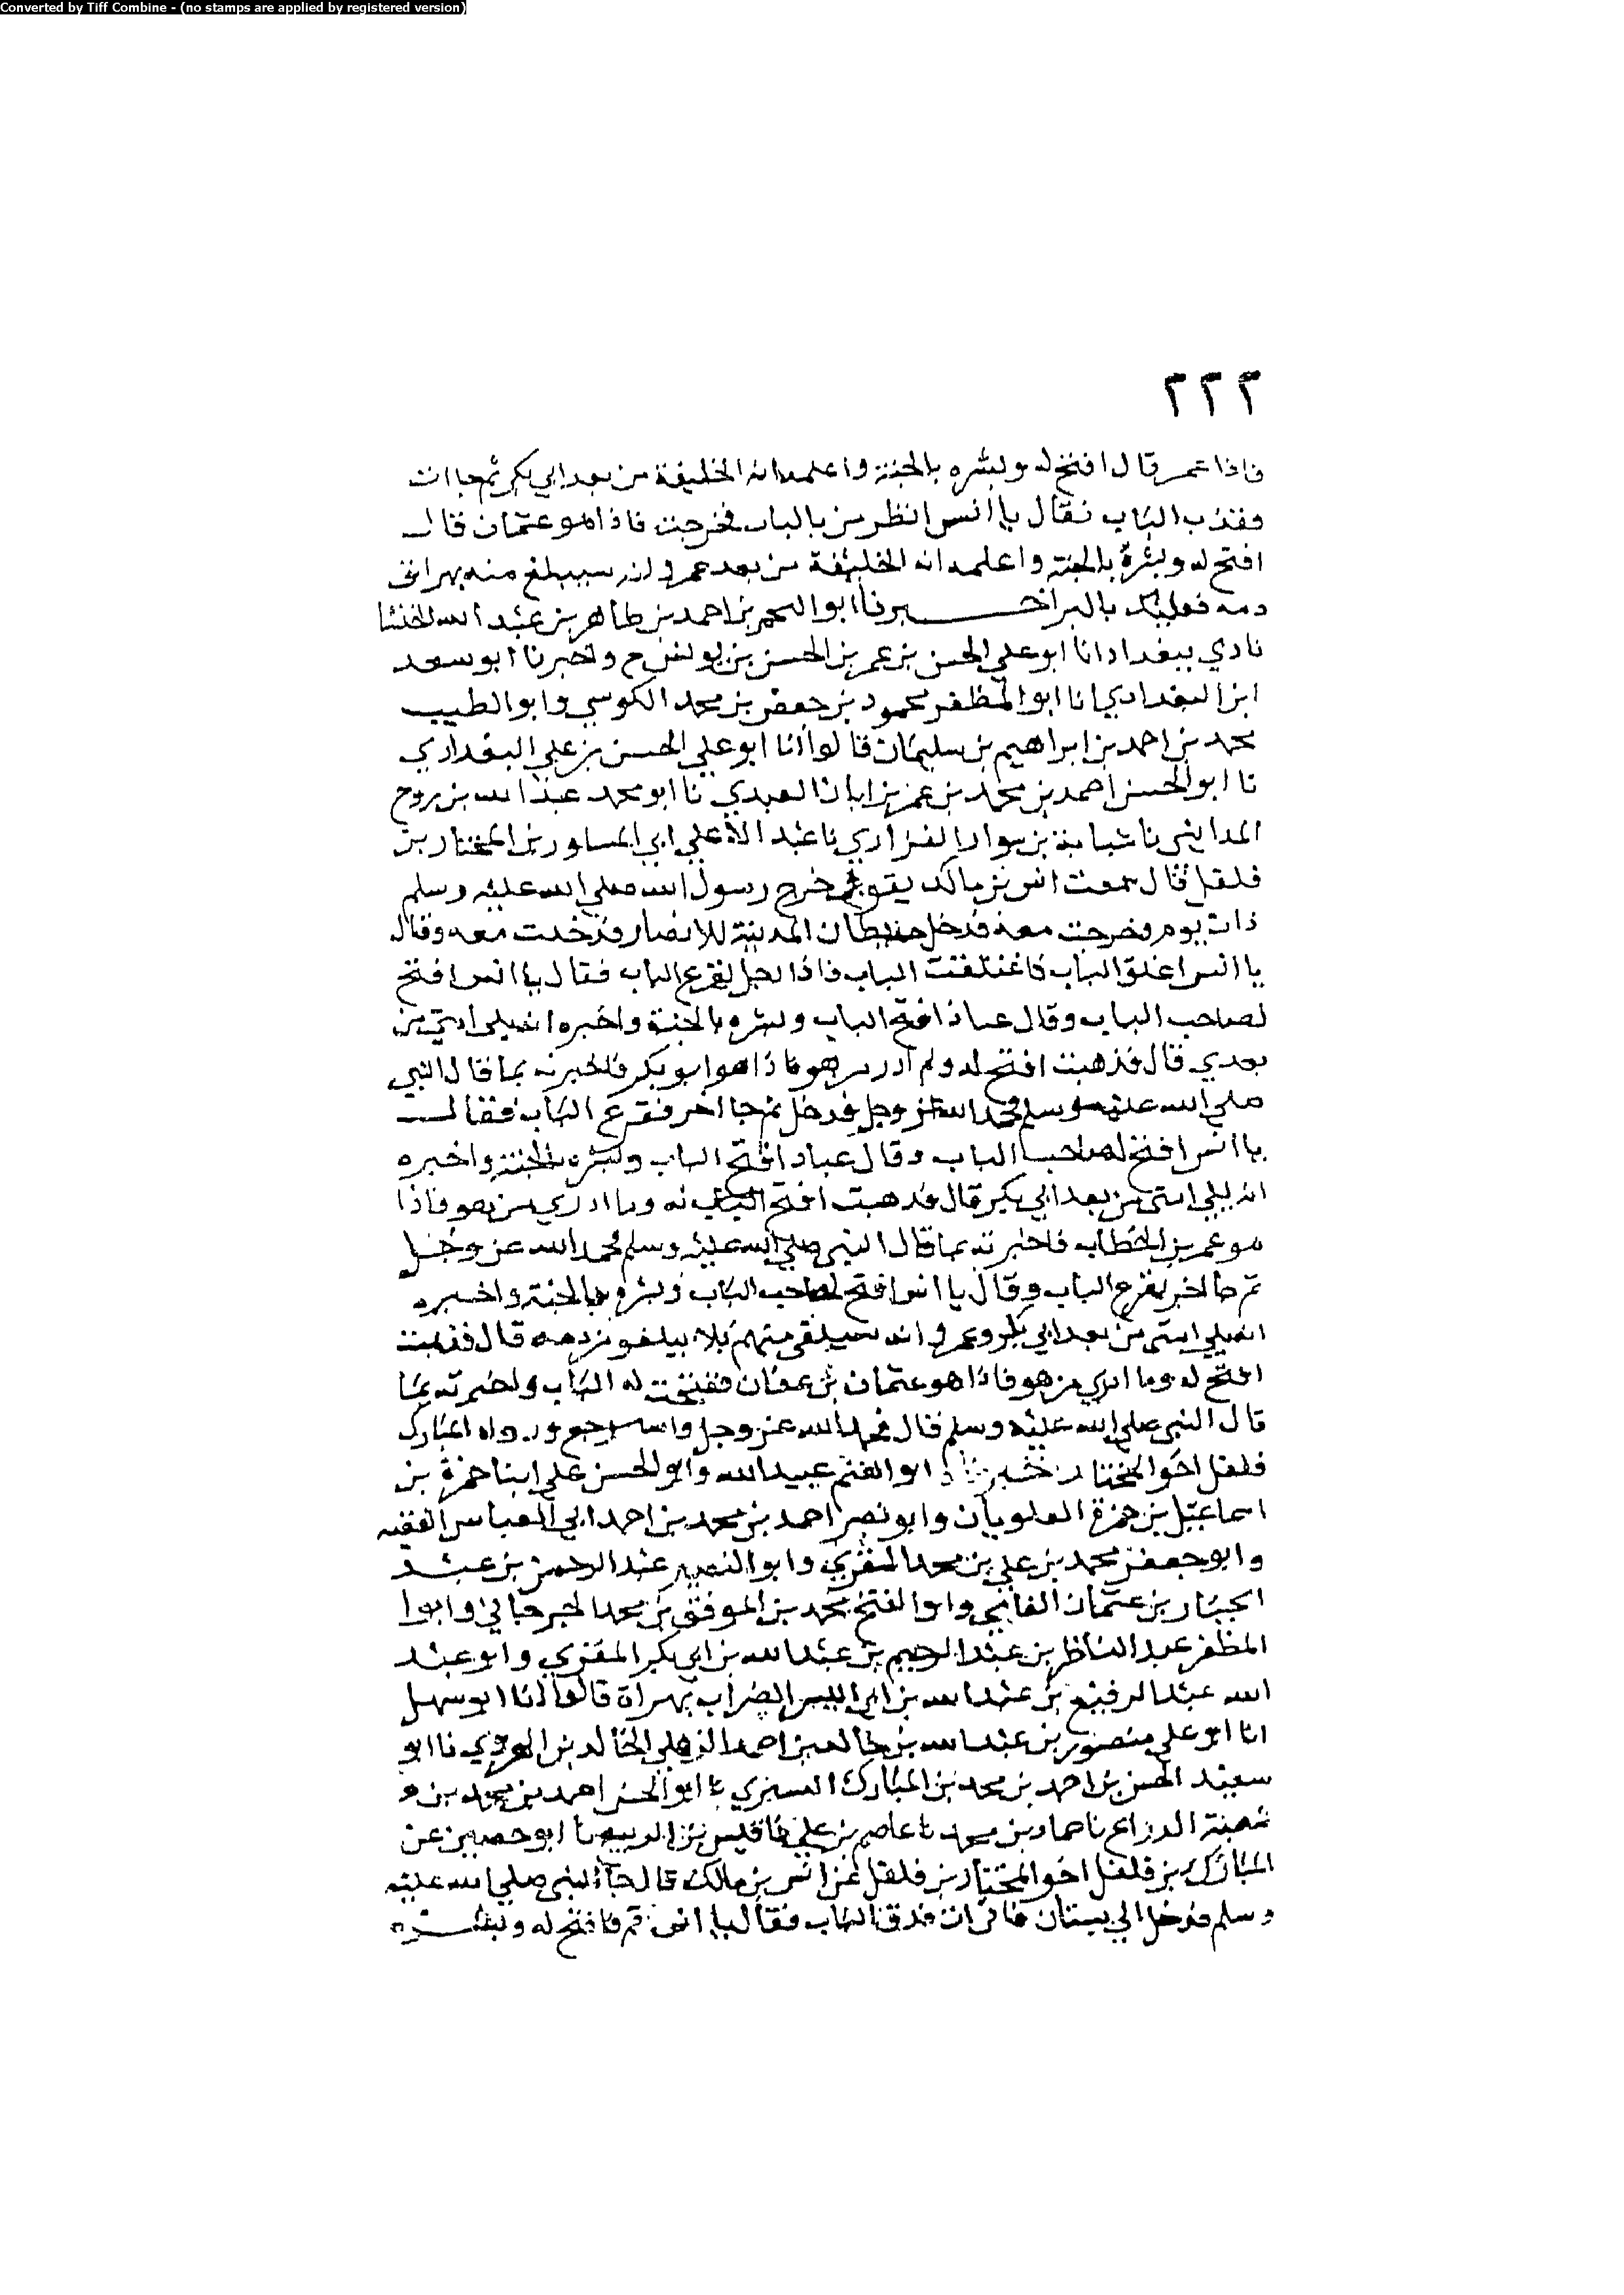 Converted by Tiff Combine - (no stamps are applied by registered version)
٢٢٢
فاذا عمر قال افتح له وبشره بالجنة واعلمه انه الخليفة من بعد ابي بكر ثم جاات
فدق الباب فقال يا انس انظر من بالباب فخرجت فاذا هو عثمان قال
افتح له وبشره بالجنة واعلمه انه الخليفة من بعد عمر وانه سيبلغ منه يهراق
دمه فعليك بالبر اخبرنا ابوا احمد بن طاهر بن عبد الله
نادي ببغداد انا ابو علي الحسن بن عمر بن الحسن بن يونس ح واخبرنا ابو سعد
ابن البغدادي انا ابو المظفر محمود بن جعفر بن محمد الكوسي وابو الطيب
محمد بن احمد بن ابراهيم بن سليمان قالوا انا ابو علي الحسن بن علي البغدادي
نا ابو الحسن احمد بن محمد بن عمر بن ابان العبدي نا ابو محمد عبد الله بن روح
المدايني نا شبابة بن سوار الفزاري نا عبد الاعلي ابي المساور نا المختار بن
فلفل قال سمعت انس بن مالك يقول خرج رسول الله صلي الله عليه وسلم
ذات يوم وخرجت معه فدخل حيطان المدينة للانصار فدخلت معه وقال
يا انس اغلق الباب فاغلقت الباب فاذا رجل يقرع الباب فقال يا انس افتح
لصاحب الباب وقال عباد افتح الباب وبشره بالجنة واخبره انه يلي امتي من
بعدي قال فذهبت افتح له ولم ادر من هو فاذا هو ابو بكر فاخبرته بما قال النبي
صلي الله عليه وسلم فحمد الله عز وجل فدخل ثم جا اخر فقرع الباب فقال
يا انس افتح لصاحب الباب وقال عباد افتح الباب وبشره بالجنة واخبره
انه يلي امتي من بعد ابي بكر قال فذهبت افتح الباب له وما ادري من هو فاذا
هو عمر بن الخطاب فاخبرته بما قال النبي صلي الله عليه وسلم فحمد الله عز وجل
ثم جا اخر يقرع الباب وقال يا انس افتح لصاحب الباب وبشره بالجنة واخبره
انه يلي امتي من بعد ابي بكر وعمر وانه سيلقي منهم بلا يبلغون دمه قال فذهبت
افتح له وما ادري من هو فاذا هو عثمان بن عفان ففتحت له الباب واخبرته بما
قال النبي صلي الله عليه وسلم قال فحمد الله عز وجل واسترجع ورواه المبارك
فلفل اخو المختار ابو الغنم عبيد الله وابو الحسن علي ابنا حمزة بن
اسماعيل بن حمزة العلويان وابو نصر احمد بن محمد بن احمد ابي العباس الفقيه
وابو جعفر محمد بن علي بن محمد المقري وابو النصر عبد الرحمن بن عبد
الجبار بن عثمان الفامي وابو الفتح محمد بن الموفق بن محمد الجرجاني وابوا
المظفر عبد الناظر بن عبد الرحيم بن عبد الله بن ابي بكر المقري وابو عبد
الله عبد الرفيع بن عبد الله بن ابي اليسر الضراب بهراة قالوا انا ابو سهل
انا ابو علي منصور بن عبد الله بن خالد بن احمد الذهلي الخالد بن الهروي نا ابو
سعيد الحسن بن احمد بن محمد بن المبارك نا ابو الحسن احمد بن محمد بن
شعبة الدراع نا حماد بن محمد نا عاصم بن علي نا قيس بن الربيع نا ابو حصين عن
المبارك بن فلفل اخو المختار بن فلفل عن انس بن مالك قال جا النبي صلي الله عليه
وسلم فدخل الي بستان فات ات فدق الباب فقال يا انس قم فافتح له وبشره